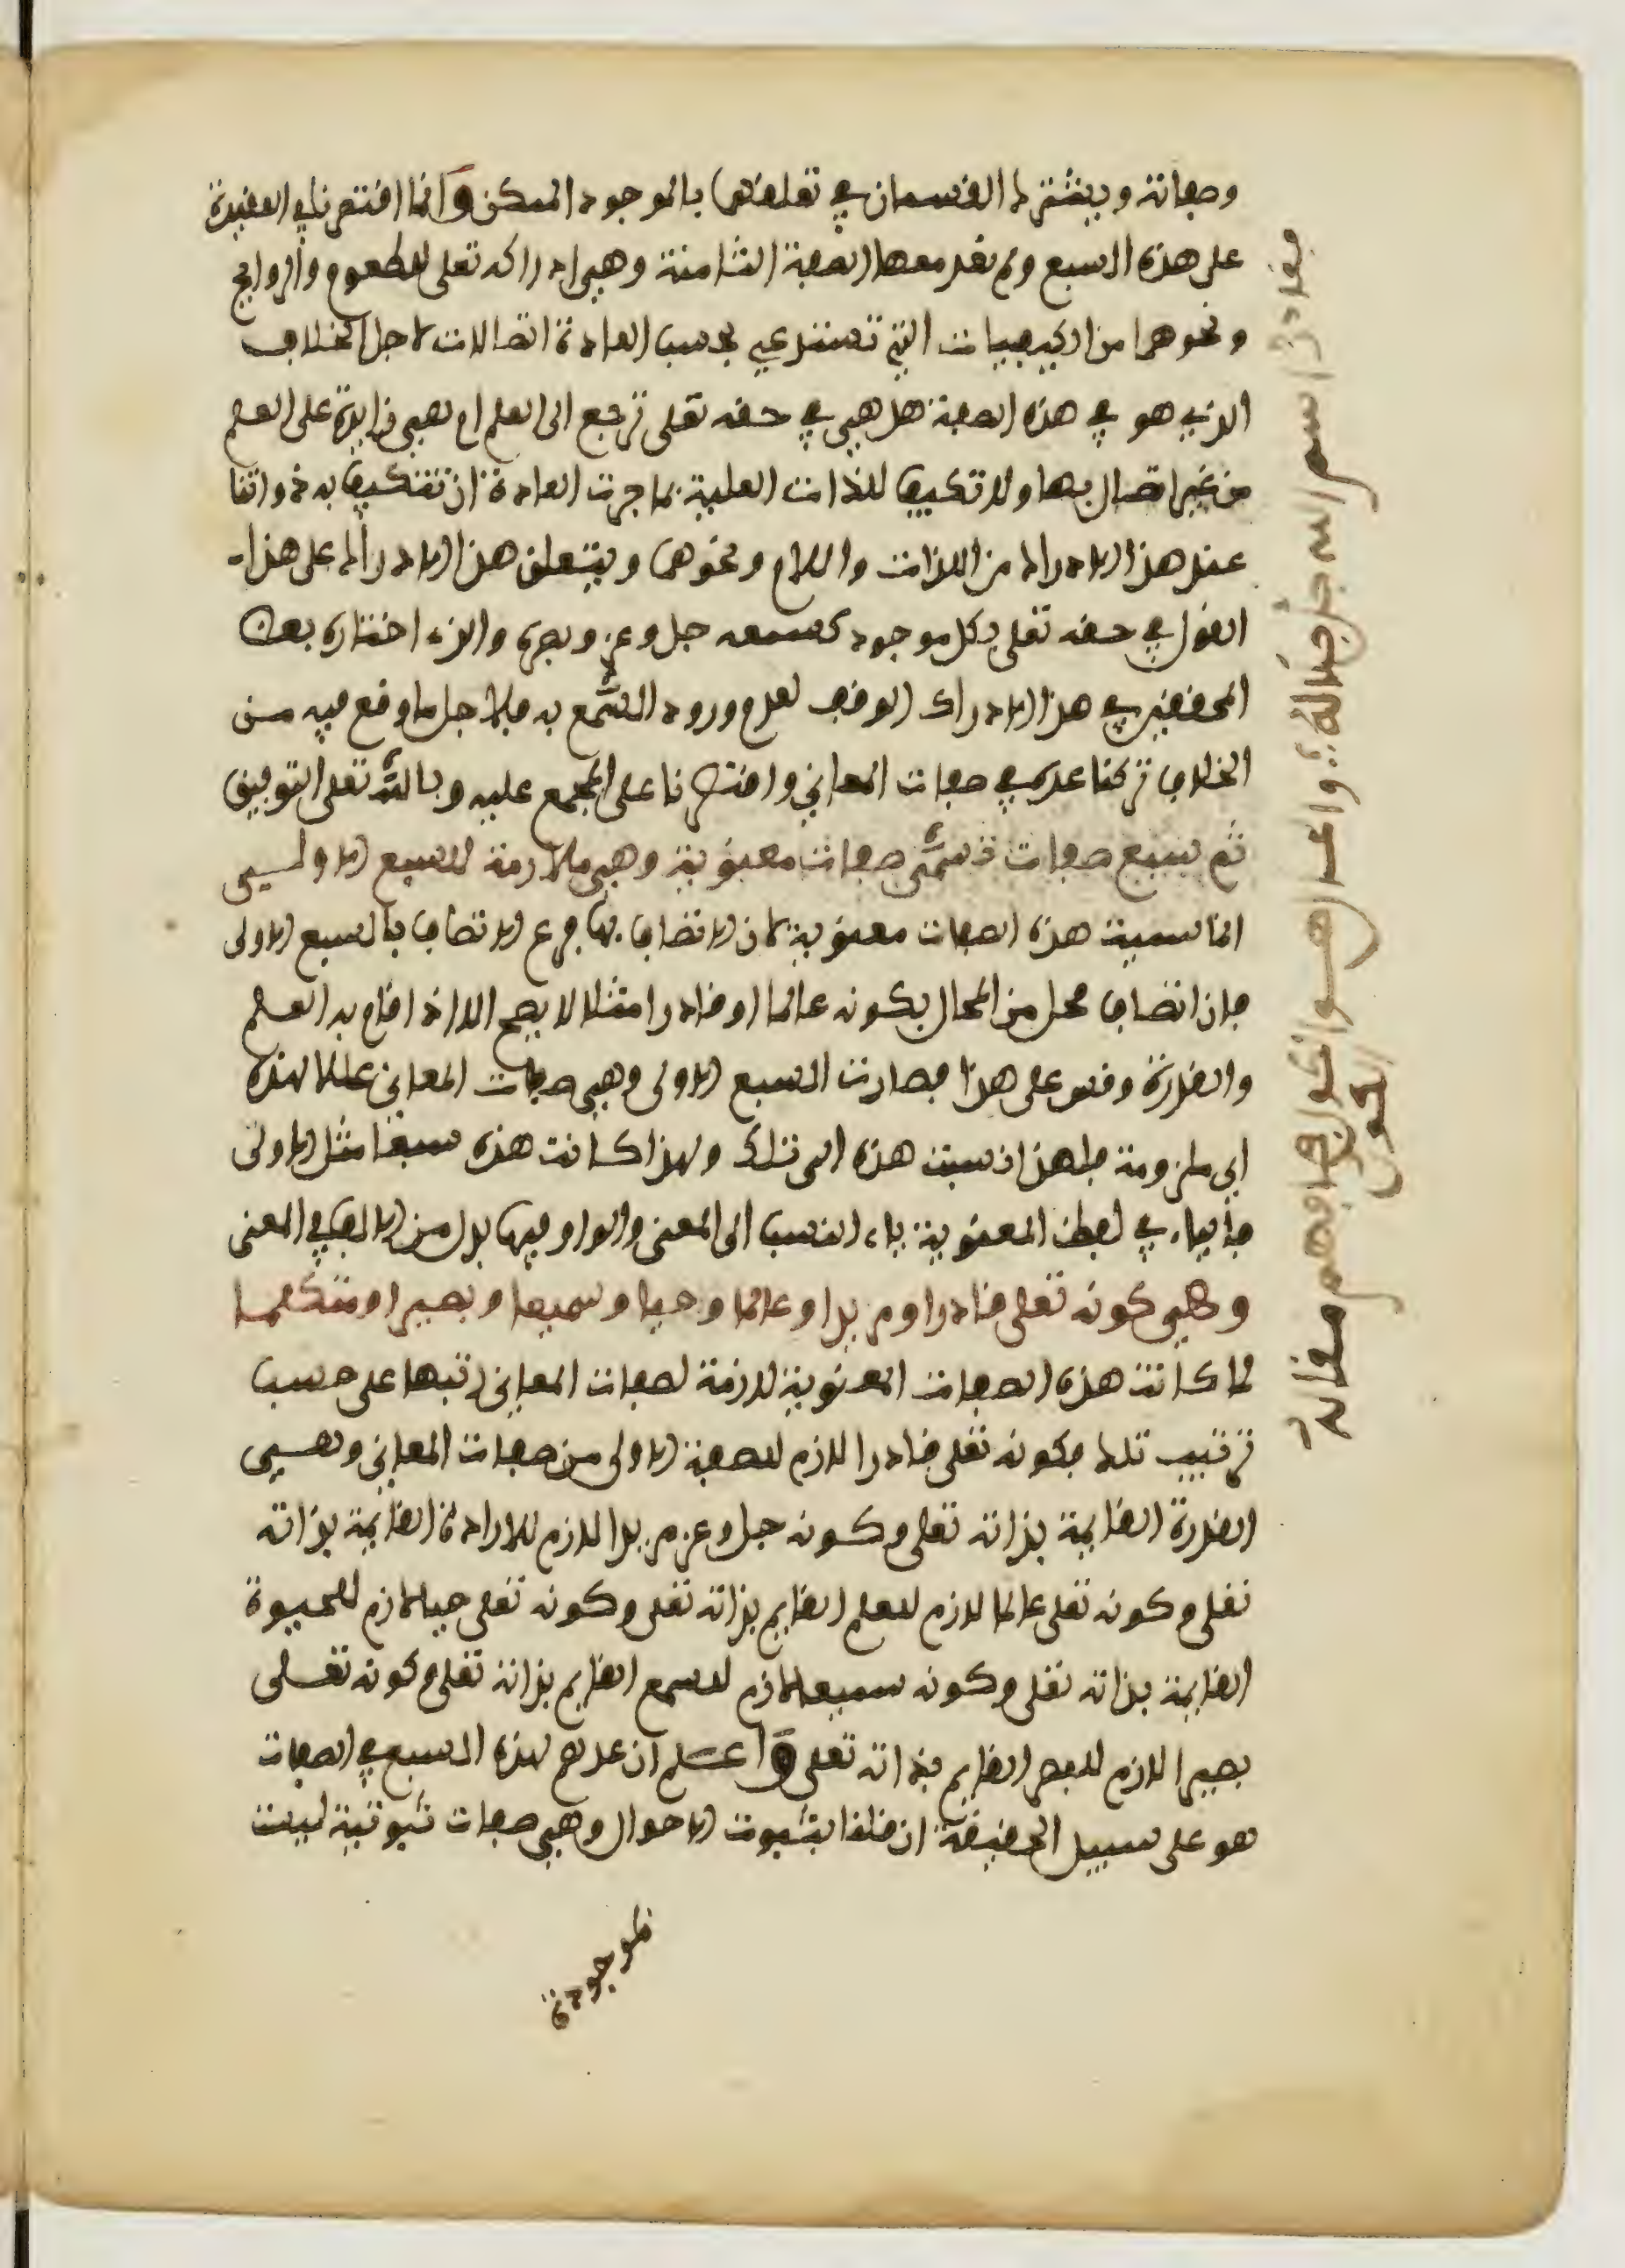 وصفاته ويشترك القسمان في تعلقهما بالموجود الممكن وانما اقتصرنا في العقيدة
على هذه السبع ولم نعد معها الصفة الثامنة وهي ادراكه تعلى للطعوم والروايح
ونحوهما من الكيفيات التي تستدعي بحسب العادة اتصالات لاجل الخلاف
الذي هو في هذه الصفة هل هي في حقه تعلى ترجع الى العلم او هي زايدة على العلم
من غير اتصال بها ولا تكييف للذات العلية بما جرت العادة ان تتكيف به ذواتنا
عند هذا الادراك من اللذات والالام ونحوهما ويتعلق هذا الادراك على هذا
القول في حقه تعلى بكل موجود كسمعه جل وعز وبصره والذي اختاره بعض
المحققين في هذا الادراك الوقف لعدم ورود السمع به فلاجل ما وقع فيه من
الخلاف تركنا عده في صفات المعاني واقتصرنا على المجمع عليه وبالله تعلى التوفيق
ثم سبع صفات تسمى صفات معنوية وهي ملازمة للسبع الاولى
انما سميت هذه الصفات معنوية لان الاتصاف بها فرع الاتصاف بالسبع الاولى
فان اتصاف محل من المحال بكونه عالما او قادرا مثلا لا يصح الا اذا قام به العلم
والقدرة وقس على هذا فصارت السبع الاولى وهي صفات المعاني عللا لهذه
اي ملزومة فلهذا نسبت هذه الى تلك ولهذا كانت هذه سبعا مثل الاولى
فالياء في لفظ المعنوية ياء النسب الى المعنى والواو فيها بدل من الالف في المعنى
وهي كونه تعلى قادرا ومريدا وعالما وحيا وسميعا وبصيرا ومتكلما
لما كانت هذه الصفات المعنوية لازمة لصفات المعاني رتبها على حسب
ترتيب تلك فكونه تعلى قادرا لازم للصفة الاولى من صفات المعاني وهي
القدرة القايمة بذاته تعلى وكونه جل وعز مريدا لازم للارادة القايمة بذاته
تعلى وكونه تعلى عالما لازم للعلم القايم بذاته تعلى وكونه تعلى حيا لازم للحيوة
القايمة بذاته تعلى وكونه سميعا لازم للسمع القايم بذاته تعلى وكونه تعلى
بصيرا لازم للبصر القايم بذاته تعلى واعلم ان عدهم لهذه السبع في الصفات
هو على سبيل الحقيقة ان قلنا بثبوت الاحوال وهي صفات ثبوتية ليست
بموجودة
اسم الله جل جلاله